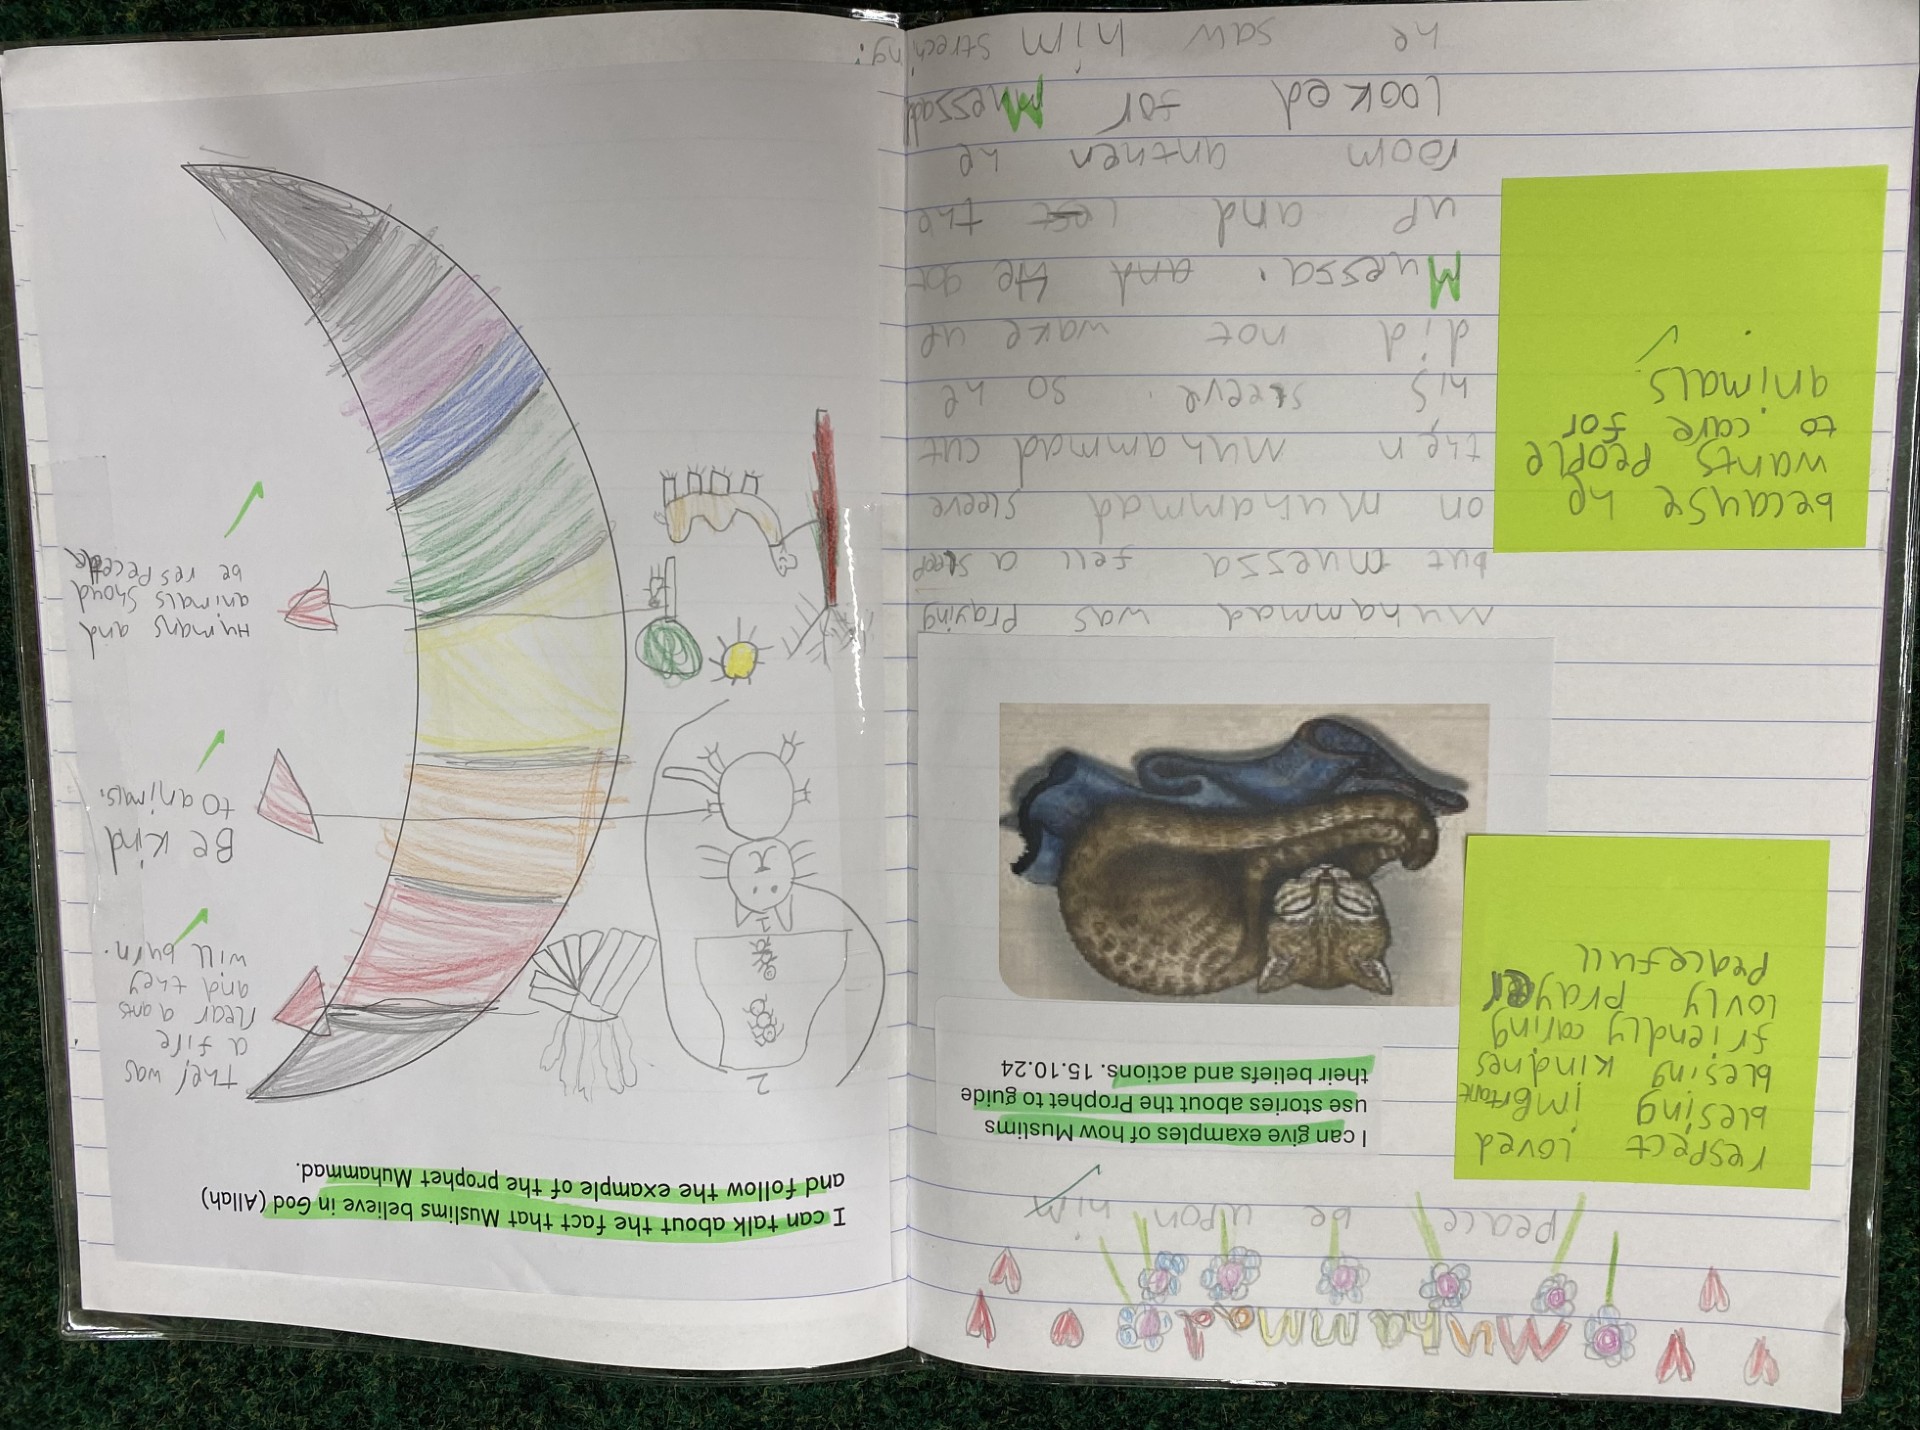 Muhammad
peace be upon him
respect loved
blesing imprtant
blesing kindnes
friendly caring
lovly prayer
peacefull
I can give examples of how Muslims
use stories about the Prophet to guide
their beliefs and actions. 15.10.24
muhammad was Praying
but muessa fell a sleep
on muhammad sleeve
then muhammad cut
his sleeve. so he
did not wake up
Muessa. and He got
up and left the
room anthen he
Looked for Muessad
he saw him streching.
because he
wants people
to care for
animals.
I can talk about the fact that Muslims believe in God (Allah)
and follow the example of the prophet Muhammad.
2
1
the/ was
a fire
near a ants
and they
will burn.
Be kind
to animals.
Humans and
animals Shoud
be respecette